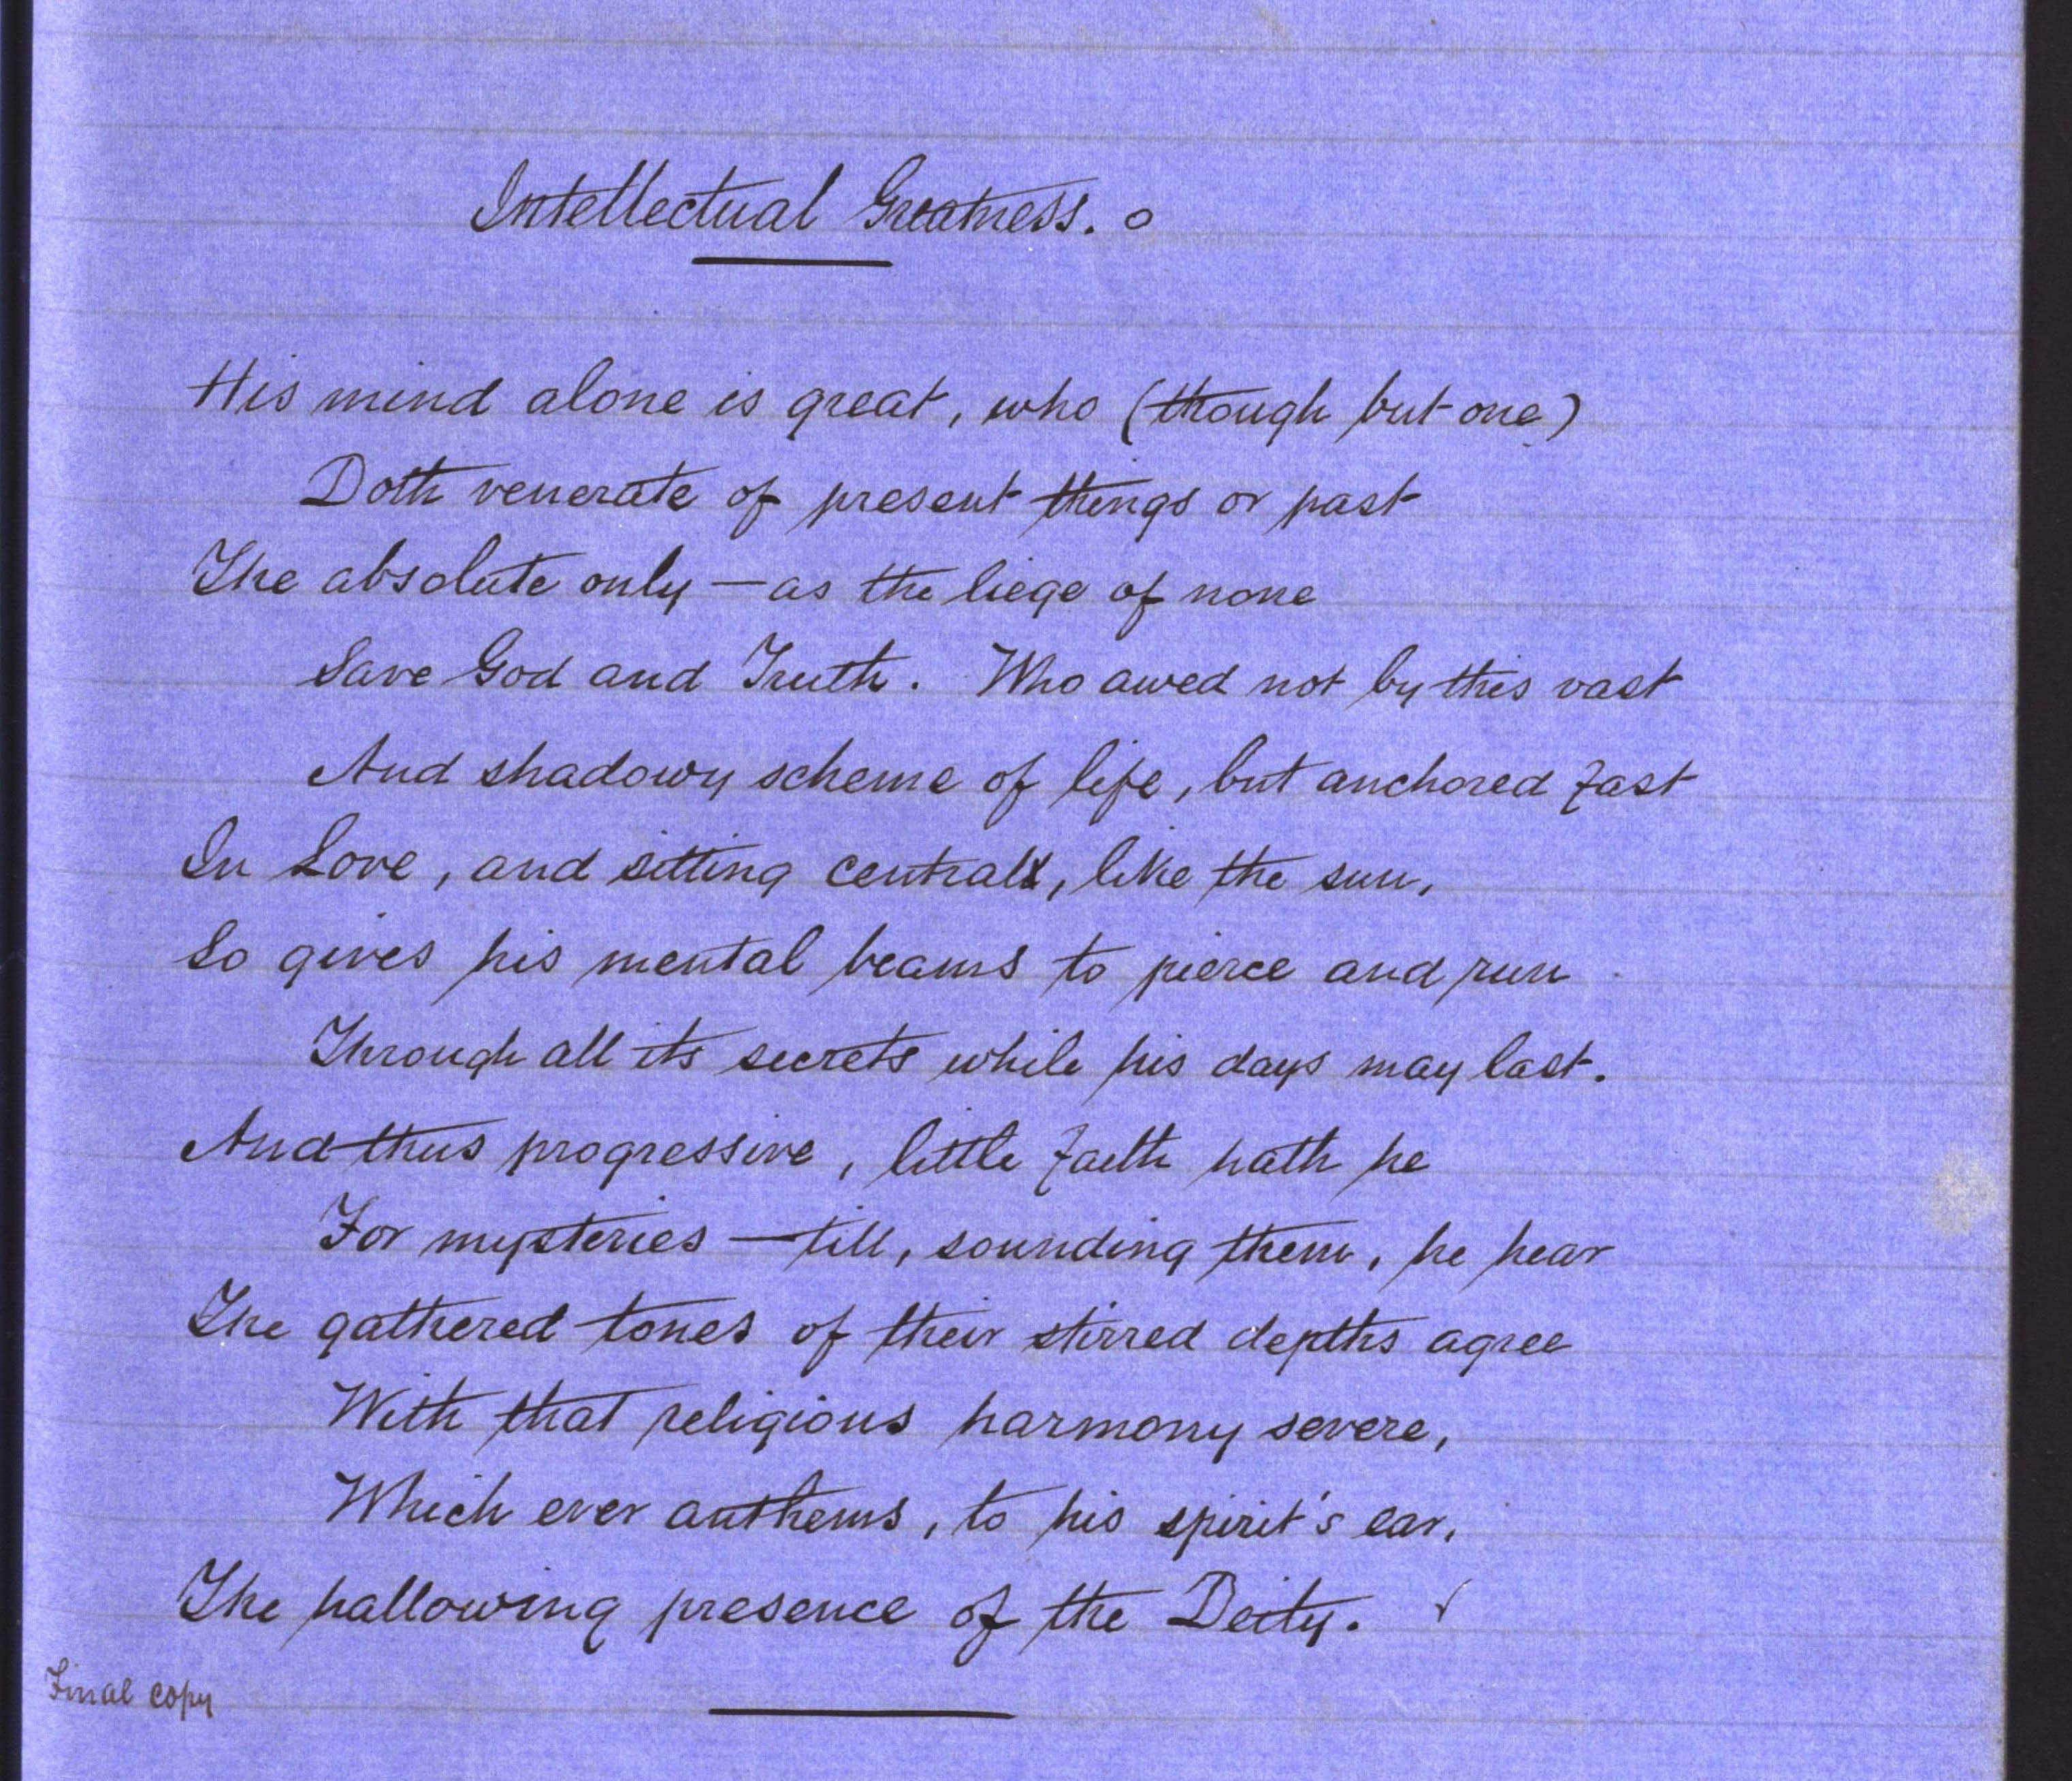 Intellectual Greatness. o
His mind alone is great, who (though but one)
Doth venerate of present things or past
The absolute only — as the liege of none
Save God and Truth. Who awed not by this vast
And shadowy scheme of life, but anchored fast
In Love, and sitting central, like the sun,
So gives his mental beams to pierce and run
Through all its secrets while his days may last.
And thus progressive, little faith hath he
For mysteries — till, sounding them, he hear
The gathered tones of their stirred depths agree
With that religious harmony severe,
Which ever anthems, to his spirit's ear,
The hallowing presence of the Deity. ✓
Final copy